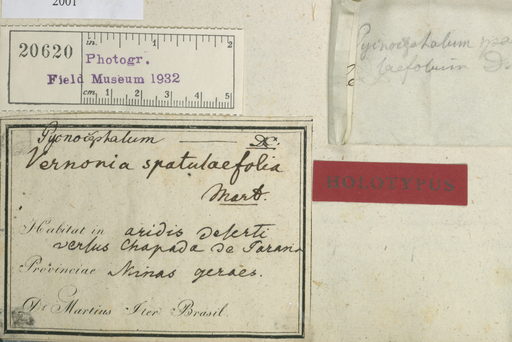 2001
20620
in. 1 2
Photogr.
Field Museum 1932
cm. 1 2 3 4 5
Pycnocephalum
faefolium D.
Pycnocephalum — DC.
Vernonia spatulaefolia
Mart.
HOLOTYPUS
Habitat in aridis deserti
versus Chapada de Parana
Provinciae Minas geraes.
Dr Martius Iter Brasil.